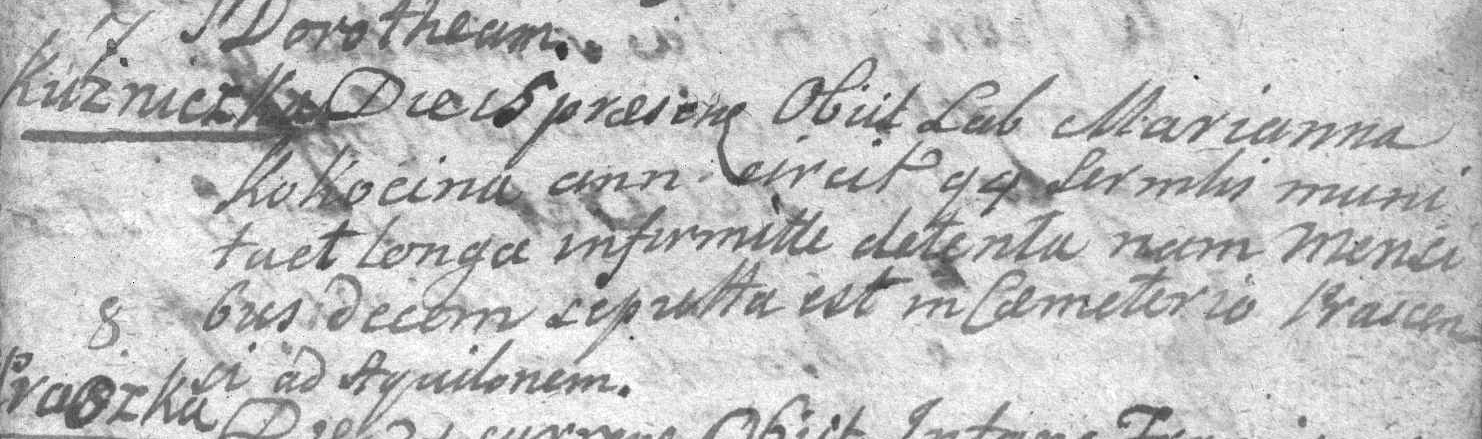 7 S Dorotheam.
Kuźniczka Die 15 præsens Obiit Lab Marianna
Kokocina ann circit 44 Sermtis muni
ta et longa infirmitte detenta nam Mensi
8 bus decem sepulta est in Cæmeterio Prascen
si ad Aquilonem.
Praszka Die currens Obiit Infans